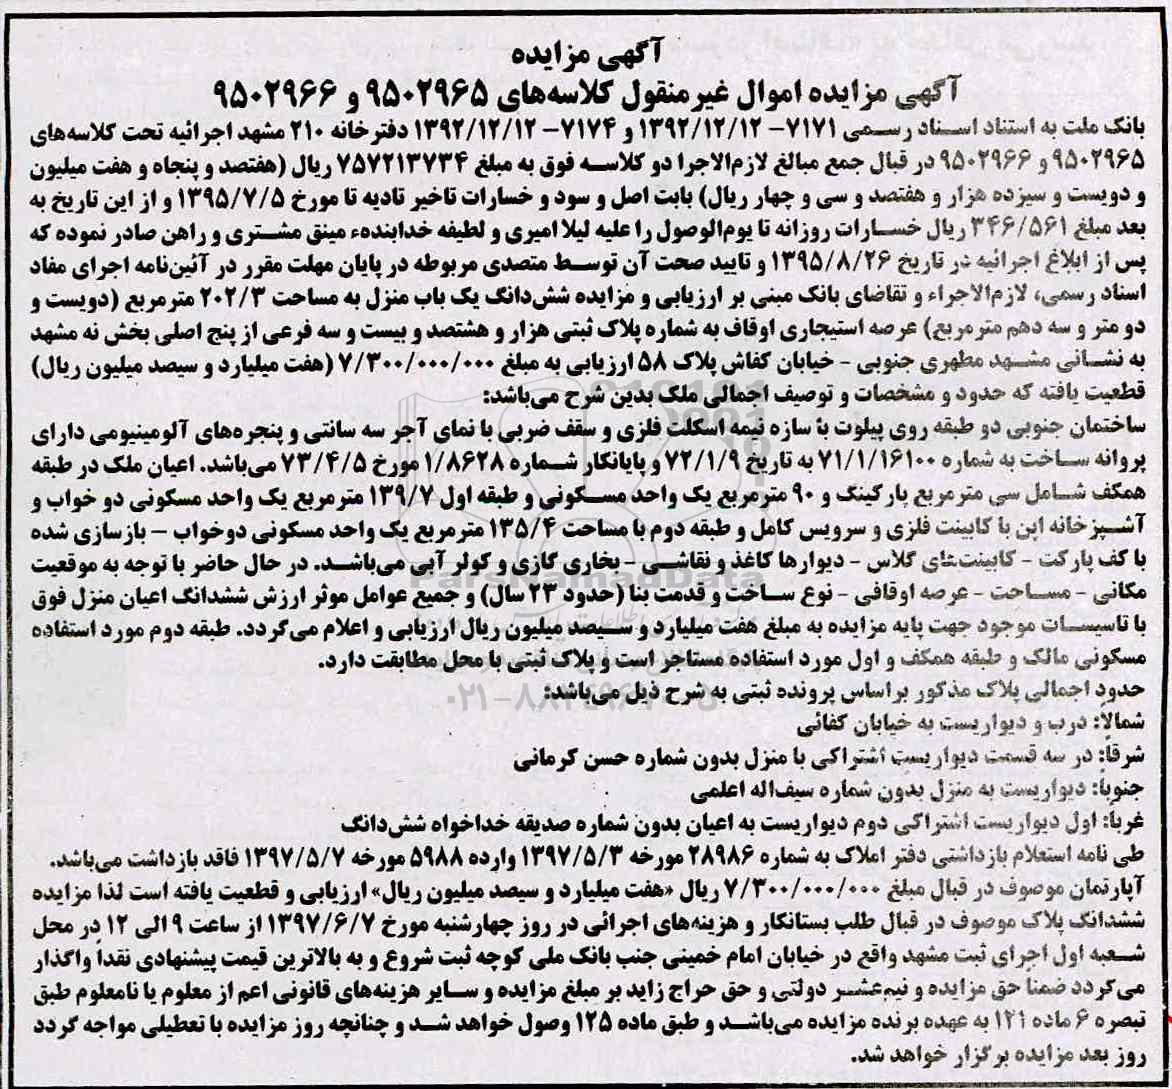 آگهی مزایده
آگهی مزایده اموال غیرمنقول کلاسه‌های ۹۵۰۲۹۶۵ و ۹۵۰۲۹۶۶
بانک ملت به استناد اسناد رسمی ۷۱۷۱- ۱۳۹۲/۱۲/۱۲ و ۷۱۷۴- ۱۳۹۲/۱۲/۱۲ دفترخانه ۲۱۰ مشهد اجرائیه تحت کلاسه‌های
۹۵۰۲۹۶۵ و ۹۵۰۲۹۶۶ در قبال جمع مبالغ لازم‌الاجرا دو کلاسه فوق به مبلغ ۷۵۷۲۱۳۷۳۴ ریال (هفتصد و پنجاه و هفت میلیون
و دویست و سیزده هزار و هفتصد و سی و چهار ریال) بابت اصل و سود و خسارات تاخیر تادیه تا مورخ ۱۳۹۵/۷/۵ و از این تاریخ به
بعد مبلغ ۳۴۶/۵۶۱ ریال خسارات روزانه تا یوم‌الوصول را علیه لیلا امیری و لطیفه خداینده مینق مشتری و راهن صادر نموده که
پس از ابلاغ اجرائیه در تاریخ ۱۳۹۵/۸/۲۶ و تایید صحت آن توسط متصدی مربوطه در پایان مهلت مقرر در آئین‌نامه اجرای مفاد
اسناد رسمی، لازم‌الاجراء و تقاضای بانک مبنی بر ارزیابی و مزایده شش‌دانگ یک باب منزل به مساحت ۲۰۲/۳ مترمربع (دویست و
دو متر و سه دهم مترمربع) عرصه استیجاری اوقاف به شماره پلاک ثبتی هزار و هشتصد و بیست و سه فرعی از پنج اصلی بخش نه مشهد
به نشانی مشهد مطهری جنوبی - خیابان کفاش پلاک ۵۸ ارزیابی به مبلغ ۷/۳۰۰/۰۰۰/۰۰۰ (هفت میلیارد و سیصد میلیون ریال)
قطعیت یافته که حدود و مشخصات و توصیف اجمالی ملک بدین شرح می‌باشد:
ساختمان جنوبی دو طبقه روی پیلوت با سازه نیمه اسکلت فلزی و سقف ضربی با نمای آجر سه سانتی و پنجره‌های آلومینیومی دارای
پروانه ساخت به شماره ۷۱/۱/۱۶۱۰۰ به تاریخ ۷۲/۱/۹ و پایانکار شماره ۱/۸۶۲۸ مورخ ۷۳/۴/۵ می‌باشد. اعیان ملک در طبقه
همکف شامل سی مترمربع پارکینگ و ۹۰ مترمربع یک واحد مسکونی و طبقه اول ۱۳۹/۷ مترمربع یک واحد مسکونی دو خواب و
آشپزخانه اپن با کابینت فلزی و سرویس کامل و طبقه دوم با مساحت ۱۳۵/۴ مترمربع یک واحد مسکونی دوخواب – بازسازی شده
با کف پارکت - کابینت‌های گلاس - دیوارها کاغذ و نقاشی - بخاری گازی و کولر آبی می‌باشد. در حال حاضر با توجه به موقعیت
مکانی - مساحت - عرصه اوقافی - نوع ساخت و قدمت بنا (حدود ۲۳ سال) و جمیع عوامل موثر ارزش ششدانگ اعیان منزل فوق
با تاسیسات موجود جهت پایه مزایده به مبلغ هفت میلیارد و سیصد میلیون ریال ارزیابی و اعلام می‌گردد. طبقه دوم مورد استفاده
مسکونی مالک و طبقه همکف و اول مورد استفاده مستاجر است و پلاک ثبتی با محل مطابقت دارد.
حدود اجمالی پلاک مذکور براساس پرونده ثبتی به شرح ذیل می‌باشد:
شمالاً: درب و دیواریست به خیابان کفائی
شرقاً: در سه قسمت دیواریست اشتراکی با منزل بدون شماره حسن کرمانی
جنوباً: دیواریست به منزل بدون شماره سیف‌اله اعلمی
غرباً: اول دیواریست اشتراکی دوم دیواریست به اعیان بدون شماره صدیقه خداخواه شش‌دانگ
طی نامه استعلام بازداشتی دفتر املاک به شماره ۲۸۹۸۶ مورخه ۱۳۹۷/۵/۳ وارده ۵۹۸۸ مورخه ۱۳۹۷/۵/۷ فاقد بازداشت می‌باشد.
آپارتمان موصوف در قبال مبلغ ۷/۳۰۰/۰۰۰/۰۰۰ ریال «هفت میلیارد و سیصد میلیون ریال» ارزیابی و قطعیت یافته است لذا مزایده
ششدانگ پلاک موصوف در قبال طلب بستانکار و هزینه‌های اجرائی در روز چهارشنبه مورخ ۱۳۹۷/۶/۷ از ساعت ۹ الی ۱۲ در محل
شعبه اول اجرای ثبت مشهد واقع در خیابان امام خمینی جنب بانک ملی کوچه ثبت شروع و به بالاترین قیمت پیشنهادی نقداً واگذار
می‌گردد ضمناً حق مزایده و نیم‌عشر دولتی و حق حراج زاید بر مبلغ مزایده و سایر هزینه‌های قانونی اعم از معلوم یا نامعلوم طبق
تبصره ۶ ماده ۱۲۱ به عهده برنده مزایده می‌باشد و طبق ماده ۱۲۵ وصول خواهد شد و چنانچه روز مزایده با تعطیلی مواجه گردد
روز بعد مزایده برگزار خواهد شد.
ParsNamadData